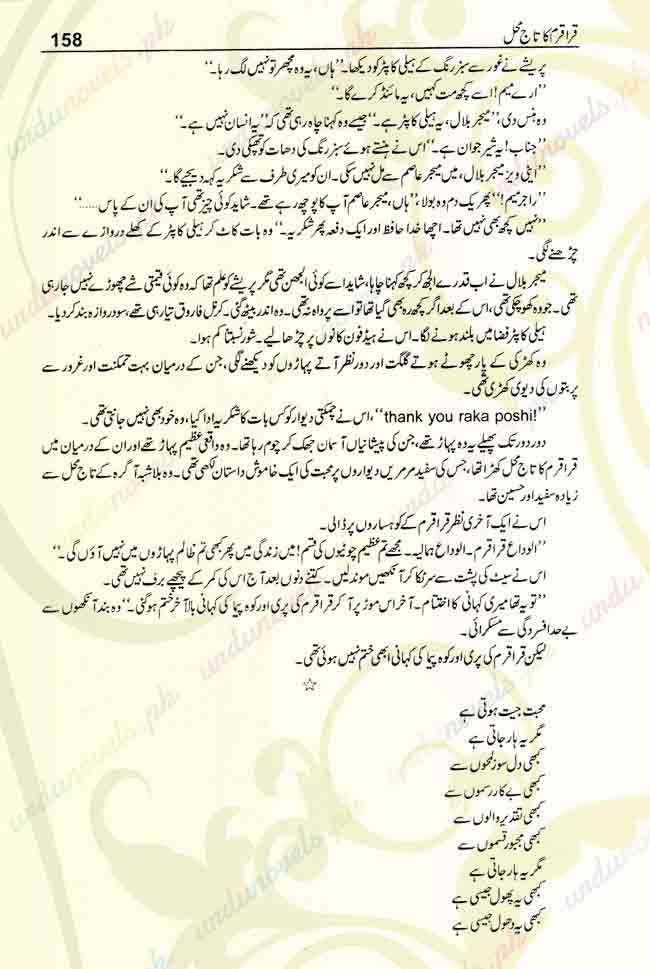 158
قراقرم کا تاج محل
پریشے نے غور سے سبز رنگ کے ہیلی کاپٹر کو دیکھا۔ ’’ہاں، یہ وہ مچھر تو نہیں لگ رہا۔‘‘
’’ارے میم! اسے کچھ مت کہیں، یہ مائنڈ کرے گا۔‘‘
وہ ہنس دی، ’’میجر بلال، یہ ہیلی کاپٹر ہے۔‘‘ جیسے وہ کہنا چاہ رہی تھی کہ ’’یہ انسان نہیں ہے۔‘‘
’’جناب! یہ شیر جوان ہے۔‘‘ اس نے ہنستے ہوئے سبز رنگ کی دھات کو تھپکی دی۔
’’اینی ویز میجر بلال، میں میجر عاصم سے مل نہیں سکی۔ ان کو میری طرف سے شکریہ کہہ دیجیے گا۔‘‘
’’راجر میم!‘‘ پھر یک دم وہ بولا، ’’ہاں، میجر عاصم آپ کا پوچھ رہے تھے۔ شاید کوئی چیز تھی آپ کی ان کے پاس......‘‘
’’نہیں کچھ بھی نہیں تھا۔ اچھا خدا حافظ اور ایک دفعہ پھر شکریہ۔‘‘ وہ بات کاٹ کر ہیلی کاپٹر کے کھلے دروازے سے اندر
چڑھنے لگی۔
میجر بلال نے اب قدرے الجھ کر کچھ کہنا چاہا، شاید اسے کوئی الجھن تھی مگر پریشے کو علم تھا کہ وہ کوئی قیمتی شے چھوڑے نہیں جا رہی
تھی۔ جو وہ کھو چکی تھی، اس کے بعد اگر کچھ رہ بھی گیا تھا تو اسے پرواہ نہ تھی۔ وہ اندر بیٹھ گئی۔ کرنل فاروق تیار ہی تھے، سو دروازہ بند کر دیا۔
ہیلی کاپٹر فضا میں بلند ہونے لگا۔ اس نے ہیڈ فون کانوں پر چڑھا لیے۔ شور نسبتاً کم ہوا۔
وہ کھڑکی کے پار چھوٹے ہوتے گلگت اور دور نظر آتے پہاڑوں کو دیکھنے لگی، جن کے درمیان بہت تمکنت اور غرور سے
پربتوں کی دیوی کھڑی تھی۔
’’thank you raka poshi!‘‘، اس نے چمکتی دیوار کو کس بات کا شکریہ ادا کیا، وہ خود بھی نہیں جانتی تھی۔
دور دور تک پھیلے یہ وہ پہاڑ تھے، جن کی پیشانیاں آسمان جھک کر چوم رہا تھا۔ وہ واقعی عظیم پہاڑ تھے اور ان کے درمیان میں
قراقرم کا تاج محل کھڑا تھا، جس کی سفید مرمریں دیواروں پر محبت کی ایک خاموش داستان لکھی تھی۔ وہ بلاشبہ آگرہ کے تاج محل سے
زیادہ سفید اور حسین تھا۔
اس نے ایک آخری نظر قراقرم کے کوہساروں پر ڈالی۔
’’الوداع قراقرم۔ الوداع ہمالیہ۔ مجھے تم عظیم چوٹیوں کی قسم! میں زندگی میں پھر کبھی تم ظالم پہاڑوں میں نہیں آؤں گی۔‘‘
اس نے سیٹ کی پشت سے سر ٹکا کر آنکھیں موند لیں۔ کتنے دنوں بعد آج اس کی کمر کے پیچھے برف نہیں تھی۔
’’تو یہ تھا میری کہانی کا اختتام۔ آخر اس موڑ پر آ کر قراقرم کی پری اور کوہ پیما کی کہانی بالآخر ختم ہو گئی۔‘‘ وہ بند آنکھوں سے
بے حد افسردگی سے مسکرائی۔
لیکن قراقرم کی پری اور کوہ پیما کی کہانی ابھی ختم نہیں ہوئی تھی۔
☆
محبت جیت ہوتی ہے
مگر یہ ہار جاتی ہے
کبھی دل سوز لمحوں سے
کبھی بے کار رسموں سے
کبھی تقدیر والوں سے
کبھی مجبور قسموں سے
مگر یہ ہار جاتی ہے
کبھی یہ پھول جیسی ہے
کبھی یہ دھول جیسی ہے
urdunovels.pk